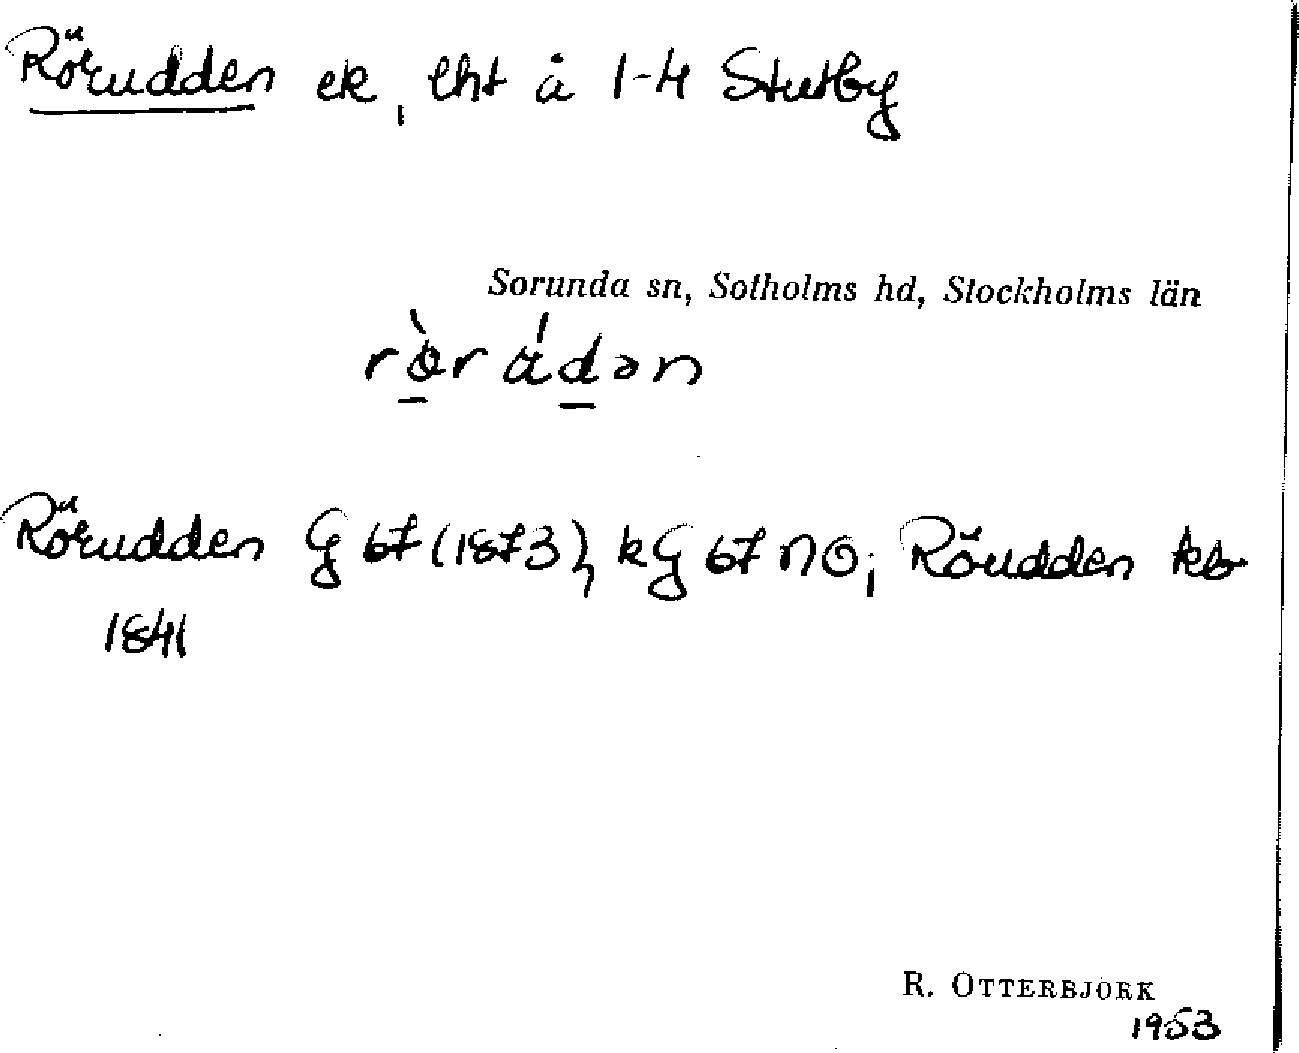 Rörudden ek, lht å 1-4 Stutby
Sorunda sn, Sotholms hd, Stockholms län
rö̀rádən
Rörudden G 67 (1873), kG 67 NO; Röudden kb
1841
R. OTTERBJÖRK
1953